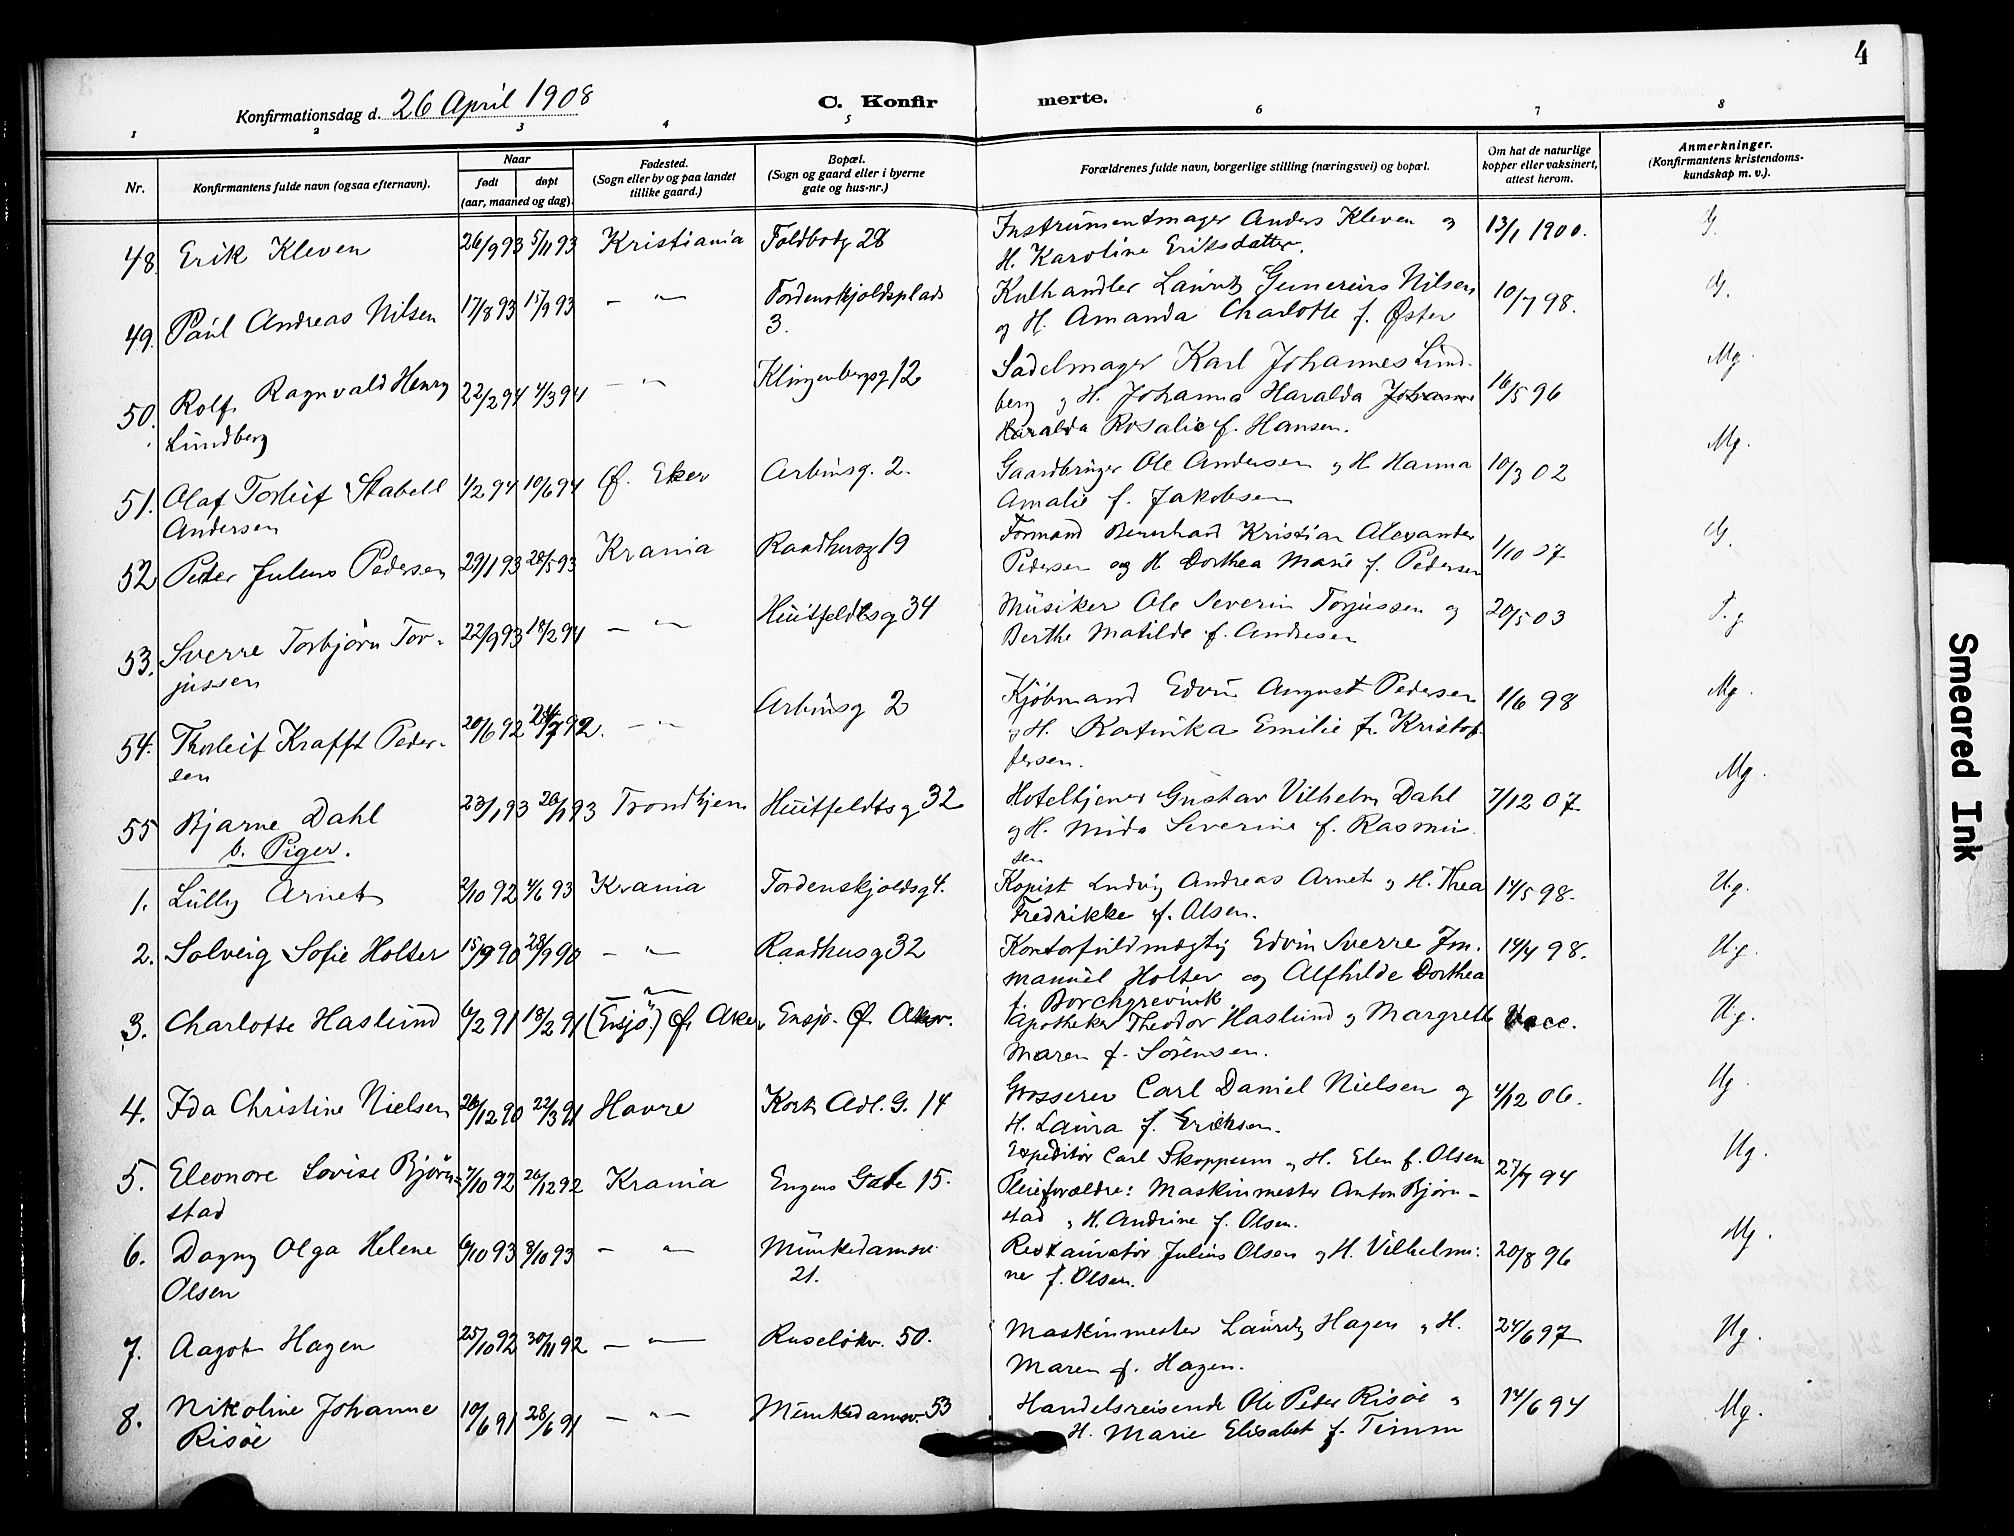 4
Konfirmationsdag d. 26 April 1908
C. Konfirmerte.
1 2 3 4 5 6 7 8
Nr. Konfirmantens fulde navn (ogsaa efternavn). Naar født døpt (aar, maaned og dag). Fødested. (Sogn eller by og paa landet tillike gaard.) Bopæl. (Sogn og gaard eller i byerne gate og hus-nr.) Forældrenes fulde navn, borgerlige stilling (næringsvei) og bopæl. Om hat de naturlige kopper eller vaksinert, attest herom. Anmerkninger. (Konfirmantens kristendomskundskap m. v.).
48. Erik Kleven 26/9 93 5/11 93 Kristiania Toldbodg 28 Instrumentmager Anders Kleven og 13/1 1900. G.
H. Karoline Eriksdatter.
49. Paul Andreas Nilsen 17/8 93 15/9 93 — " — Tordenskjoldsplads Kulhandler Lauritz Gunerius Nilsen 10/7 98. G.
3. og H. Amanda Charlotte f. Øster
50. Rolf Ragnvald Henry 22/2 94 4/3 94 — " — Klingenbergg 12 Sadelmager Karl Johannes Lind- 16/5 96 Mg.
Lundberg berg og H. Johanna Haralda Johanne
Haralda Rosalie f. Hansen.
51. Olaf Torleif Stabell 4/2 94 10/6 94 Ø. Eker Arbinsg. 2. Gaardbruger Ole Andersen og H. Hanna 10/3 02 Mg.
Andersen Amalie f. Jakobsen
52 Peter Julius Pedersen 29/1 93 28/5 93 Krania Raadhusg 19 Formand Bernhard Kristian Alexander 1/10 07 G.
Pedersen og H. Dorthea Marie f. Pedersen
53. Sverre Torbjørn Tor- 22/9 93 18/2 94 — " — Huitfeldtsg 34 Musiker Ole Severin Torjussen og 20/5 03 T.g
jussen Berthe Matilde f. Andresen
54. Thorleif Krafft Peder- 20/6 92 24/7 92. — " — Arbinsg 2 Kjøbmand Edvin August Pedersen 1/6 98 Mg.
sen og H. Katinka Emilie f. Kristof-
fersen.
55 Bjarne Dahl 23/1 93 26/1 93 Trondhjem Huitfeldtsg 32 Hoteltjener Gustav Vilhelm Dahl 7/12 07 Mg.
og H. Mida Severine f. Rasmus-
sen
b. Piger.
1. Lully Arnet 2/10 92 4/6 93 Krania Tordenskjoldsg 4. Kopist Ludvig Andreas Arnet og H. Thea 14/5 98. Ug.
Fredrikke f. Olsen.
2. Solveig Sofie Holter 15/9 90 28/9 90 — " — Raadhusg 32 Kontorfuldmægtig Edvin Sverre Im- 14/4 98. Ug.
manuel Holter og Alfhilde Dorthea
f. Borchgrevink.
3. Charlotte Haslund 6/2 91 18/2 91 (Ensjø) Ø. Aker Ensjø. Ø. Aker. Apotheker Theodor Haslund og Margrethe Vacc. Ug.
Maren f. Sørensen.
4. Ida Christine Nielsen 26/12 90 22/3 91 Havre Kort Adl. G. 14 Grosserer Carl Daniel Nielsen og 4/12 06. Ug.
H. Laura f. Eriksen.
5. Eleonore Lovise Bjørn- 7/10 92 26/12 92 Krania Engens Gate 15. Expeditør Carl Skoppum og H. Elen f. Olsen 27/4 94 Ug.
stad Pleieforældre: Maskinmester Anton Bjørn-
stad og H. Andrine f. Olsen.
6. Dagny Olga Helene 6/10 93 8/10 93 — " — Munkedamsv. Restauratør Julius Olsen og H. Vilhelmi- 20/8 96 Mg.
Olsen 21. ne f. Olsen.
7. Aagot Hagen 25/10 92 30/11 92 — " — Ruseløkv. 50. Maskinmester Lauritz Hagen og H. 24/6 97 Ug.
Maren f. Hagen.
8. Nikoline Johanne 10/6 91 28/6 91 — " — Munkedamsv. 53 Handelsreisende Ole Peder Risøe og 14/6 94 Mg.
Risøe H. Marie Elisabet f. Timm
Smeared Ink